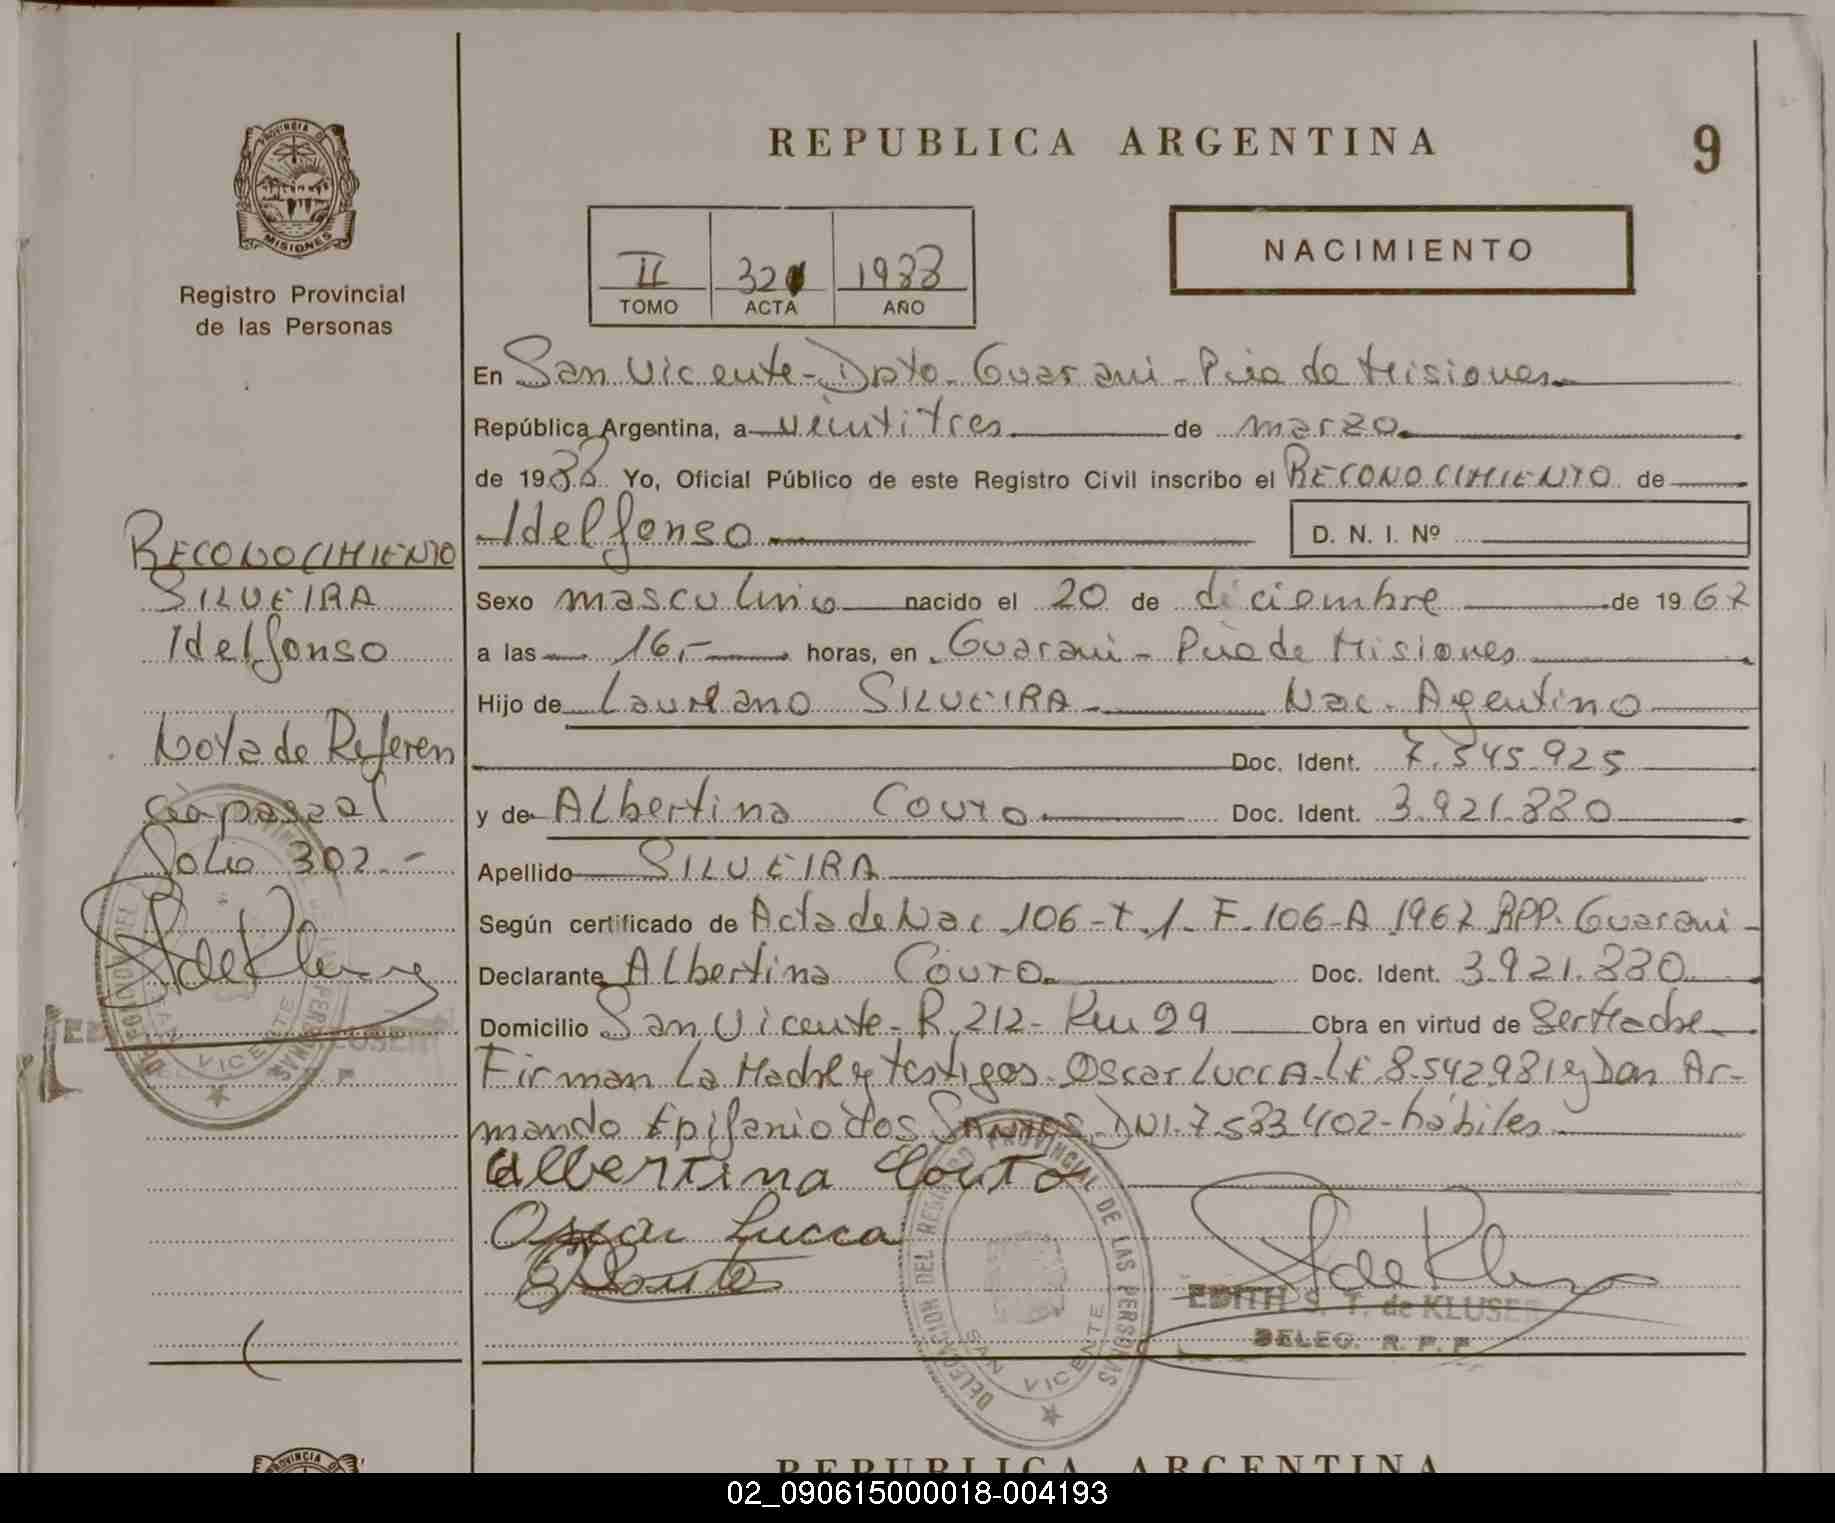 PROVINCIA DE
MISIONES
Registro Provincial
de las Personas
REPUBLICA ARGENTINA
9
II
TOMO
321
ACTA
1988
AÑO
NACIMIENTO
En San Vicente - Dpto. Guarani - Pcia de Misiones
República Argentina, a veintitres de marzo
de 1988 Yo, Oficial Público de este Registro Civil inscribo el RECONOCIMIENTO de
Idelfonso D. N. I. Nº
Sexo masculino nacido el 20 de diciembre de 1967
a las 16,- horas, en Guarani - Pcia de Misiones
Hijo de Laureano SILVEIRA Nac. Agentino
Doc. Ident. 7.545.925
y de Albertina COUTO Doc. Ident. 3.921.880
Apellido SILVEIRA
Según certificado de Acta de Nac 106 - t. 1. F. 106 - A 1967 RPP. Guarani -
Declarante Albertina COUTO Doc. Ident. 3.921.880
Domicilio San Vicente - R. 212 - Km 99 Obra en virtud de Ser Madre
Firman La Madre y testigos Oscar LUCCA - LE 8.542.981 y Don Ar-
mando Epifanio dos SANTOS - DNI. 7.533.402 - hábiles
Albertina Couto
Oscar Lucca
EDITH S. T. de KLUSENER
DELEG. R. P. P
DELEGACION DEL REGISTRO PROVINCIAL DE LAS PERSONAS
SAN VICENTE
RECONOCIMIENTO
SILVEIRA
Idelfonso
Nota de Referen
cia pasa al
Folio 302.-
REPUBLICA ARGENTINA
02_090615000018-004193